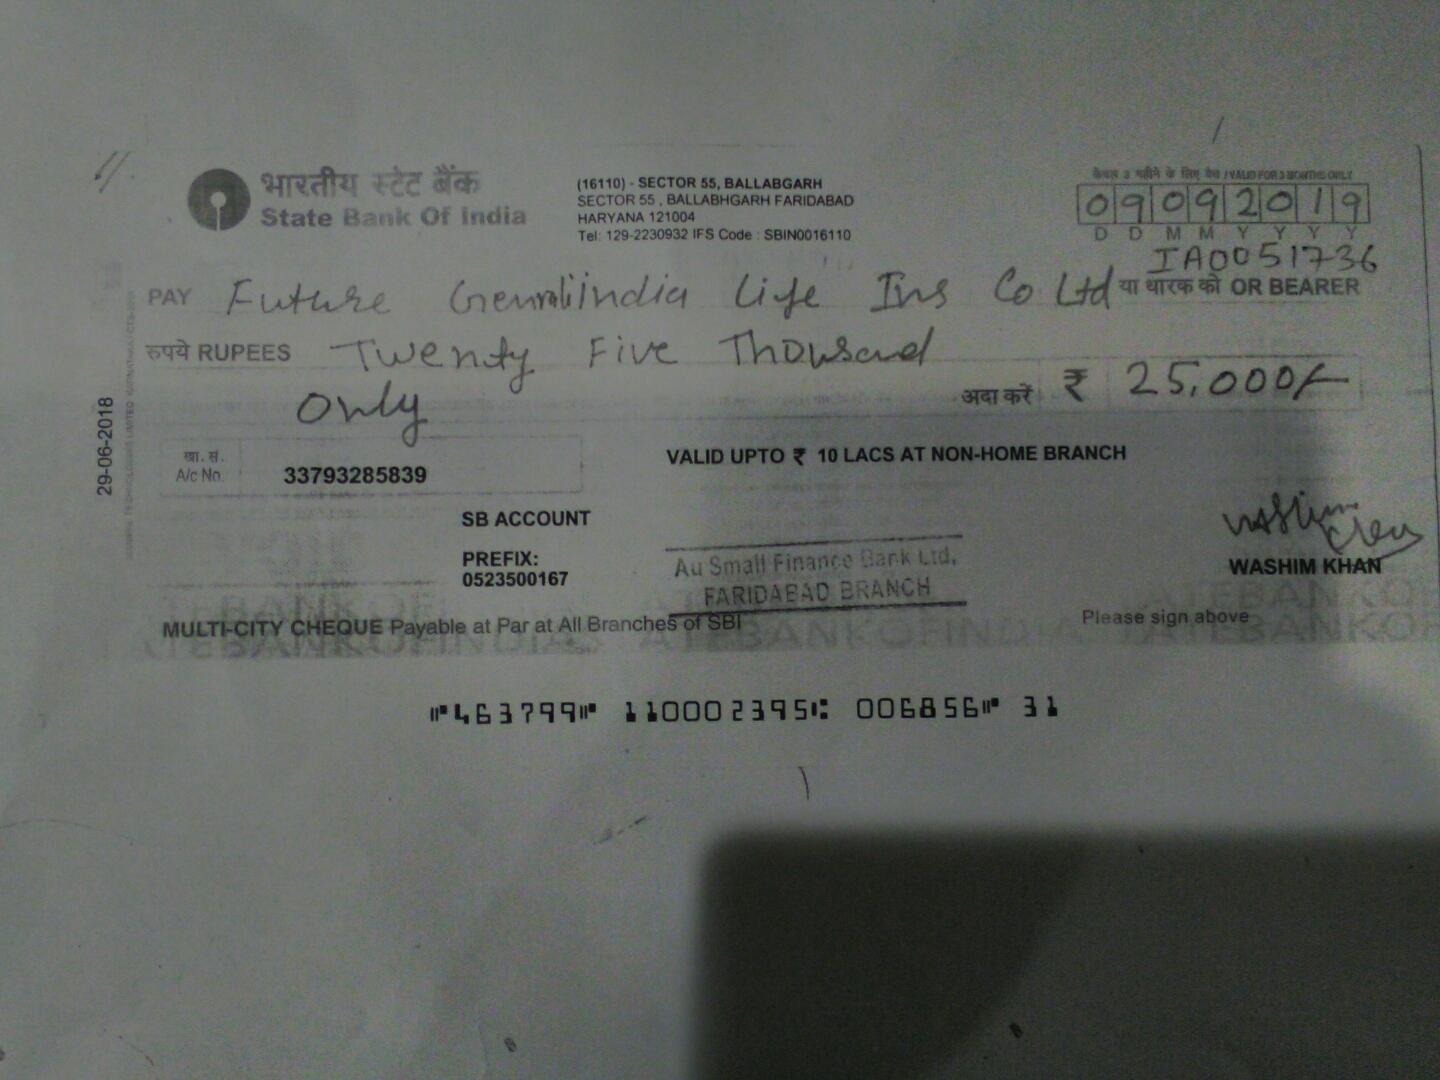 भारतीय स्टेट बैंक
State Bank Of India
(16110) - SECTOR 55, BALLABGARH
SECTOR 55 , BALLABHGARH FARIDABAD
HARYANA 121004
Tel: 129-2230932 IFS Code : SBIN0016110
केवल 3 महीने के लिए वैध / VALID FOR 3 MONTHS ONLY
09092019
D D M M Y Y Y Y
IA0051736
PAY Future Generali India Life Ins Co Ltd या धारक को OR BEARER
रुपये RUPEES Twenty Five Thousand
Only
अदा करें ₹ 25,000/-
29-06-2018
खा. सं.
A/c No. 33793285839
VALID UPTO ₹ 10 LACS AT NON-HOME BRANCH
SB ACCOUNT
PREFIX:
0523500167
Au Small Finance Bank Ltd.
FARIDABAD BRANCH
Washim Khan
WASHIM KHAN
Please sign above
MULTI-CITY CHEQUE Payable at Par at All Branches of SBI
⑈463799⑈ 110002395⑆ 006856⑈ 31